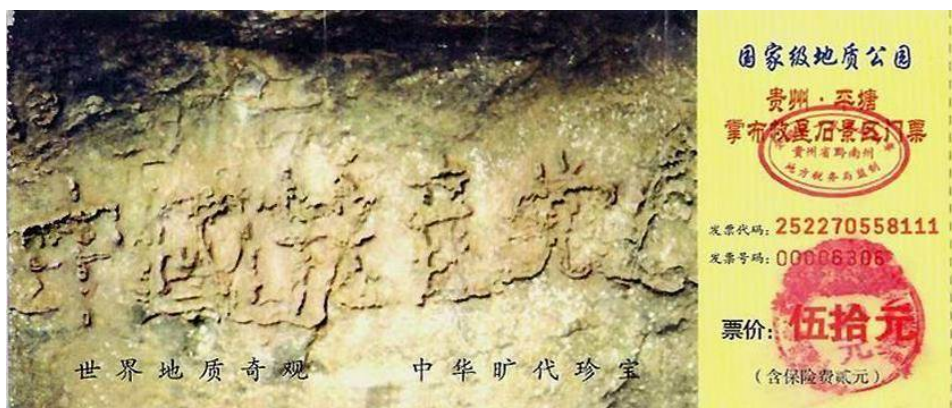 中國共产党
世界地质奇观 中华旷代珍宝
国家级地质公园
贵州·平塘
掌布救星石景区门票
贵州省黔南州
地方税务局监制
发票代码: 252270558111
发票号码: 00006306
票价: 伍拾元
（含保险费贰元）